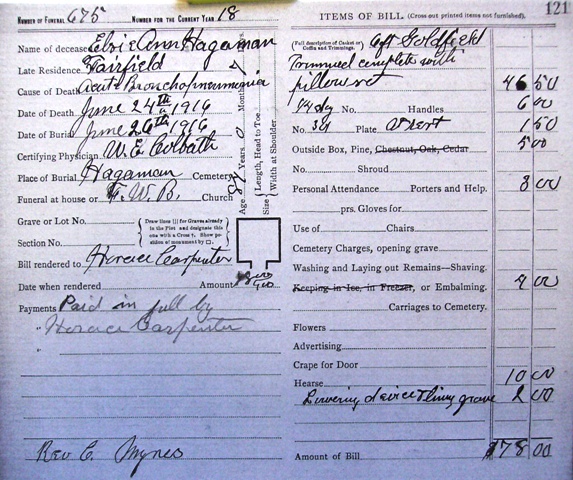 121
NUMBER OF FUNERAL 675 NUMBER FOR THE CURRENT YEAR 18
Name of deceased Elsie Ann Hagaman
Late Residence Fairfield
Cause of Death Acute Bronchopneumonia
Date of Death June 24th 1916
Date of Burial June 26th 1916
Certifying Physician W. E. Colbath
Place of Burial Hagaman Cemetery
Funeral at house or F. W. B. Church
Age Years 0 Months Days.
Size { Length, Head to Toe
Width at Shoulder
Grave or Lot No.
Section No.
Draw lines ||| for Graves already in the Plot and designate this one with a Cross †. Show position of monument by □.
Bill rendered to Horace Carpenter
Date when rendered Amount
Payments Paid in full by
" Horace Carpenter
"
Rev C. Mynes
ITEMS OF BILL (Cross out printed items not furnished).
(Full description of Casket or Coffin and Trimmings. 6ft Goldfield
Trimmed complete with
pillow set 46 50
No. Handles 6 00
No. Plate 1 50
Outside Box, Pine, Chestnut, Oak, Cedar 5 00
No. Shroud
Personal Attendance Porters and Help. 3 00
prs. Gloves for
Use of Chairs
Cemetery Charges, opening grave
Washing and Laying out Remains—Shaving.
Keeping in Ice, in Freezer, or Embalming. 4 00
Carriages to Cemetery.
Flowers
Advertising
Crape for Door
Hearse 10 00
Lowering device & lining grave 2 00
Amount of Bill $78 00